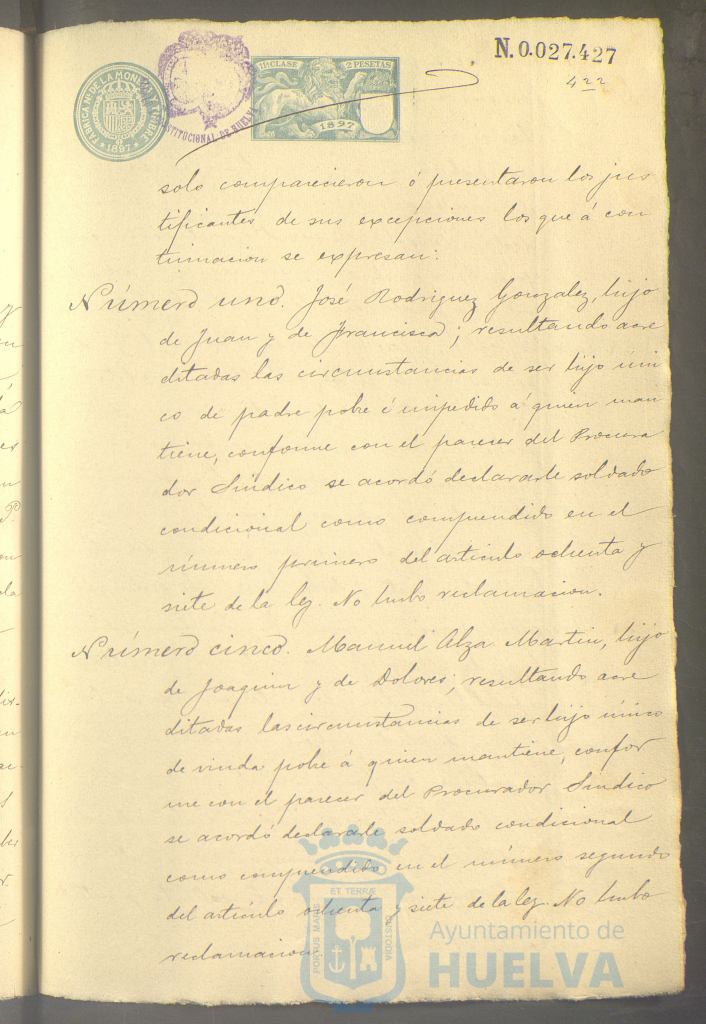 N.0.027.427
422
11ª CLASE 2 PESETAS
1897
FABRICA Nal DE LA MONEDA Y TIMBRE
* 1897 *
STITUCIONAL DE HUELVA
solo comparecieron ó presentaron los jus
tificantes de sus excepciones los que á con
tinuacion se expresan:
Número uno. José Rodriguez Gonzalez, hijo
de Juan y de Francisca; resultando acre
ditadas las circunstancias de ser hijo úni
co de padre pobre é impedido á quien man
tiene, conforme con el parecer del Procura
dor Sindico se acordó declararle soldado
condicional como comprendido en el
número primero del articulo ochenta y
siete de la ley. No hubo reclamacion.
Número cinco. Manuel Alza Martin, hijo
de Joaquin y de Dolores; resultando acre
ditadas las circunstancias de ser hijo único
de viuda pobre á quien mantiene, confor
me con el parecer del Procurador Sindico
se acordó declararle soldado condicional
como comprendido en el número segundo
del artículo ochenta y siete de la ley. No hubo
reclamacion.
PORTUS MARIS ET TERRÆ CUSTODIA
Ayuntamiento de
HUELVA